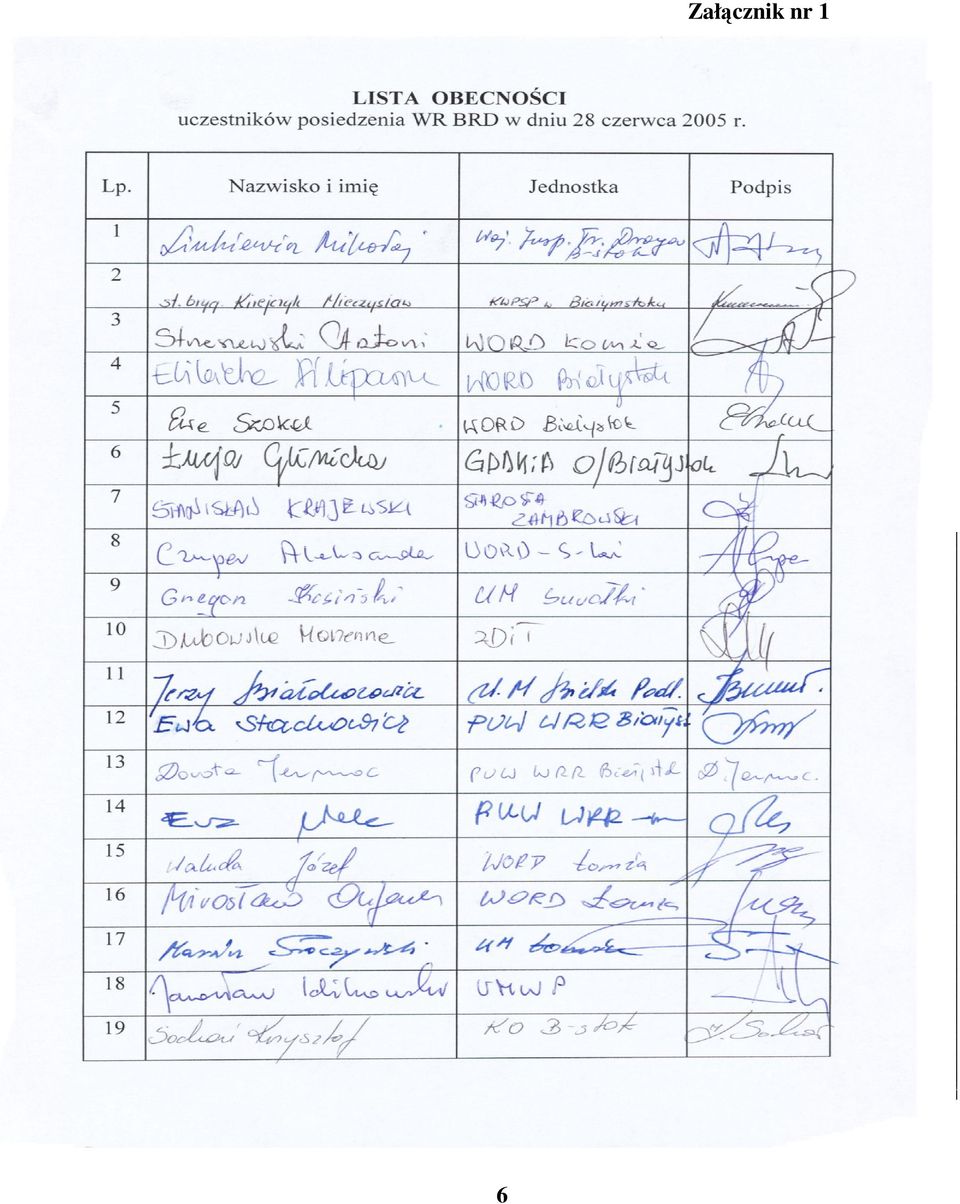 Załącznik nr 1
LISTA OBECNOŚCI
uczestników posiedzenia WR BRD w dniu 28 czerwca 2005 r.
Lp. Nazwisko i imię Jednostka Podpis
1 Linkiewicz Mikołaj Woj. Insp. Tr. Drogow B-stok
2 st. bryg. Kirejczyk Mieczysław KWPSP w Białymstoku
3 Antoni WORD Łomża
4 Elżbieta WORD Białystok
5 Ewa Szokal WORD Białystok
6 Łucja Glinicka GDDKiA O/Białystok
7 STANISŁAW KRAJEWSKI STAROSTA ZAMBROWSKI
8 Czuper Aleksander WORD - S-łki
9 Kosiński UM Suwałki
10 Dubowska Marzenna ZDiT
11 Jerzy U.M Bielsk Podl.
12 Ewa Stachowicz PUW WRR Białyst
13 Dorota PUW WRR D.
14 Ewa PUW WRR
15 Józef WORD Łomża
16 Mirosław WORD Łomża
17 Marcin Sroczyński UM Łomża
18 Jarosław UMWP
19 Sochoń Krzysztof KO B-stok
6